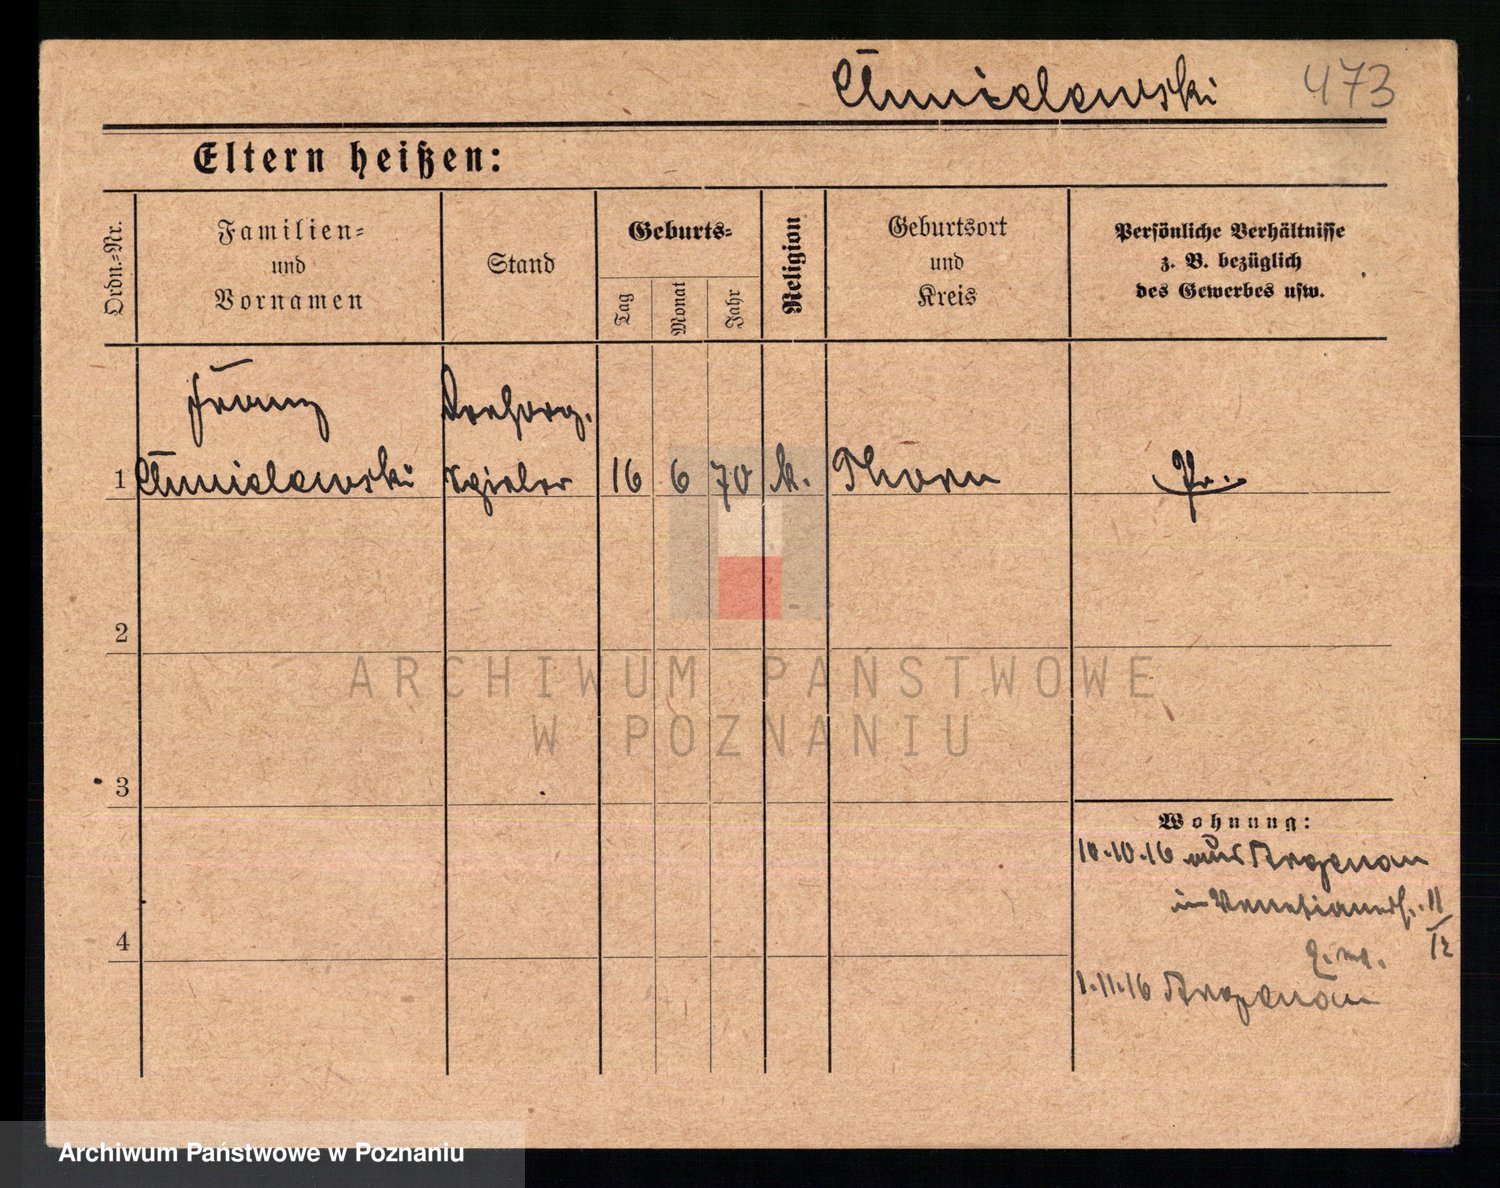 Chmielewski 473
Eltern heißen:
Ordn.-Nr.
Familien-
und
Vornamen
Stand
Geburts-
Tag
Monat
Jahr
Religion
Geburtsort
und
Kreis
Persönliche Verhältnisse
z. B. bezüglich
des Gewerbes usw.
Franz Drehorg.
1 Chmielewski spieler 16 6 70 k. Thorn Pr.
2
3
4
Wohnung:
10.10.16 aus Argenau
in Venetianerst. 11
/12
1.11.16 Argenau
ARCHIWUM PAŃSTWOWE
W POZNANIU
Archiwum Państwowe w Poznaniu